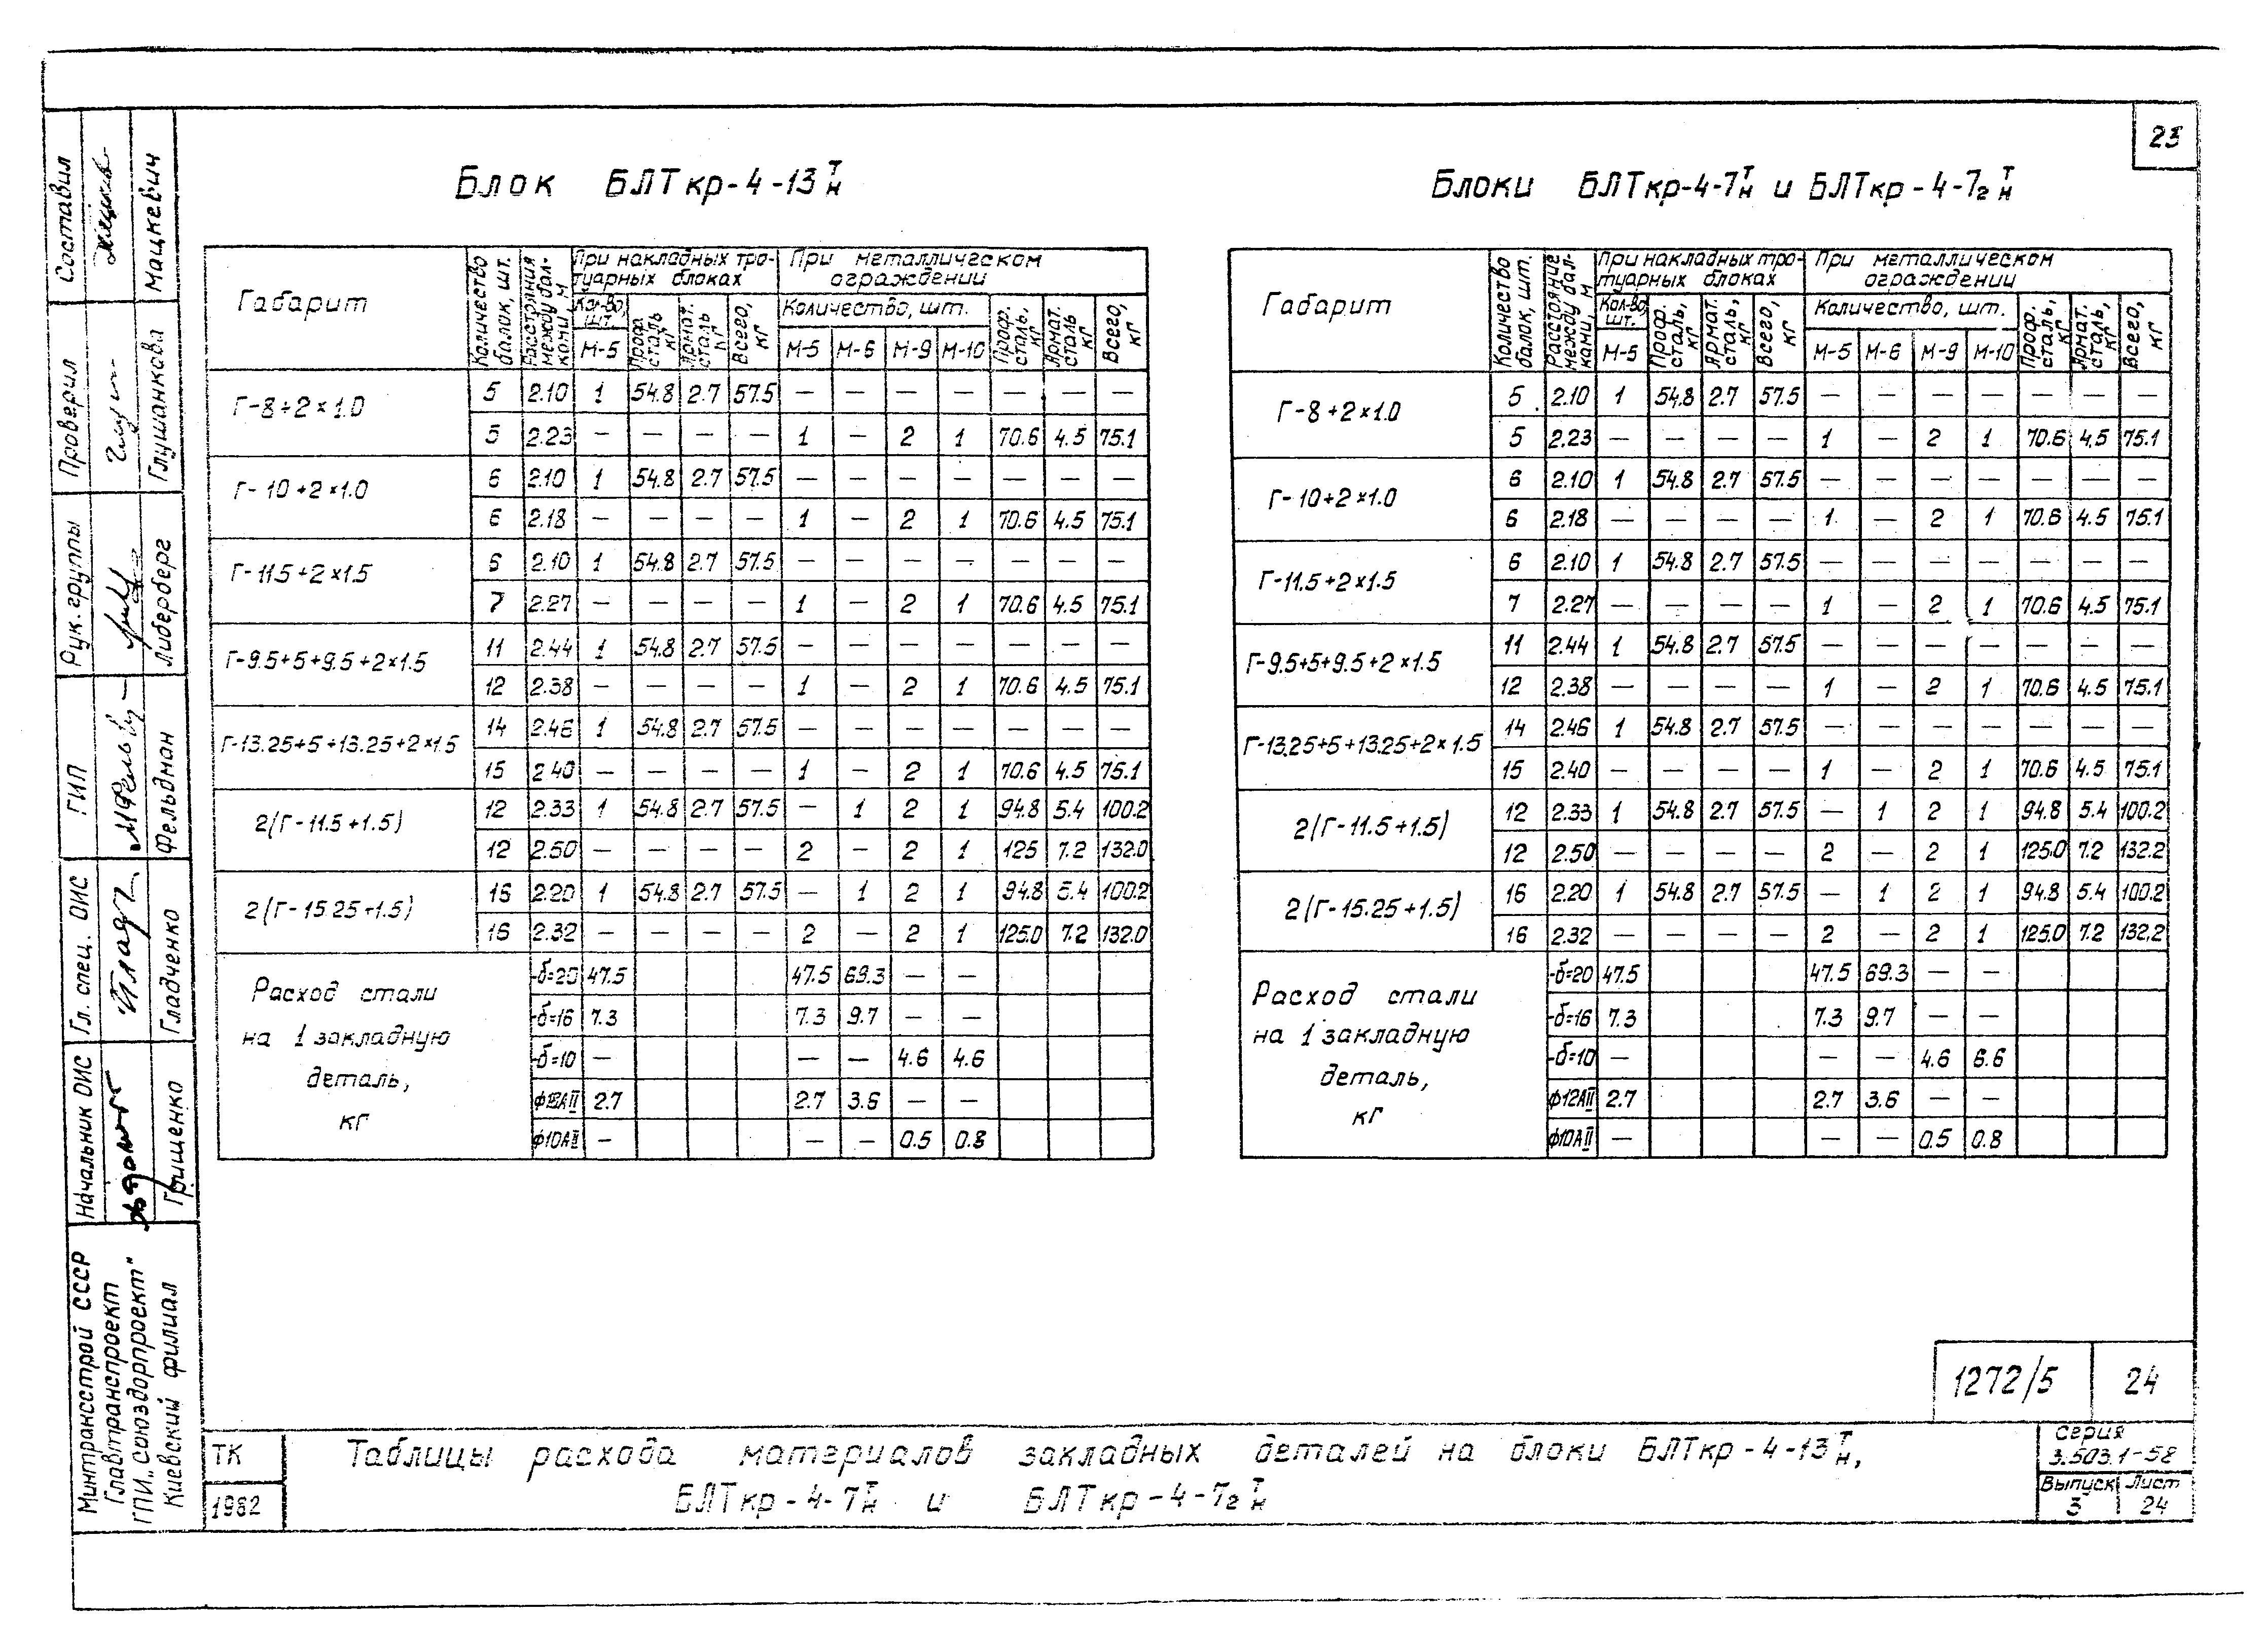 23
Составил
Мацкевич
Проверил
Глушанкова
Рук. группы
Либерберг
ГИП
Фельдман
Гл. спец. ОИС
Гладченко
Начальник ОИС
Грищенко
Минтрансстрой СССР
Главтранспроект
ГПИ „Союздорпроект"
Киевский филиал
Блок БЛТкр-4-13 Т/н
Габарит | Количество балок, шт. | Расстояния между балками, м | При накладных тротуарных блоках | При металлическом ограждении
Кол-во, шт. | Проф. сталь кг | Армат. сталь кг | Всего, кг | Количество, шт. | Проф. сталь, кг | Армат. сталь кг | Всего, кг
М-5 | М-5 | М-6 | М-9 | М-10
Г-8+2×1.0 | 5 | 2.10 | 1 | 54.8 | 2.7 | 57.5 | — | — | — | — | — | — | —
5 | 2.23 | — | — | — | — | 1 | — | 2 | 1 | 70.6 | 4.5 | 75.1
Г-10+2×1.0 | 6 | 2.10 | 1 | 54.8 | 2.7 | 57.5 | — | — | — | — | — | — | —
6 | 2.18 | — | — | — | — | 1 | — | 2 | 1 | 70.6 | 4.5 | 75.1
Г-11.5+2×1.5 | 6 | 2.10 | 1 | 54.8 | 2.7 | 57.5 | — | — | — | — | — | — | —
7 | 2.27 | — | — | — | — | 1 | — | 2 | 1 | 70.6 | 4.5 | 75.1
Г-9.5+5+9.5+2×1.5 | 11 | 2.44 | 1 | 54.8 | 2.7 | 57.5 | — | — | — | — | — | — | —
12 | 2.38 | — | — | — | — | 1 | — | 2 | 1 | 70.6 | 4.5 | 75.1
Г-13.25+5+13.25+2×1.5 | 14 | 2.46 | 1 | 54.8 | 2.7 | 57.5 | — | — | — | — | — | — | —
15 | 2.40 | — | — | — | — | 1 | — | 2 | 1 | 70.6 | 4.5 | 75.1
2(Г-11.5+1.5) | 12 | 2.33 | 1 | 54.8 | 2.7 | 57.5 | — | 1 | 2 | 1 | 94.8 | 5.4 | 100.2
12 | 2.50 | — | — | — | — | 2 | — | 2 | 1 | 125 | 7.2 | 132.0
2(Г-15.25+1.5) | 16 | 2.20 | 1 | 54.8 | 2.7 | 57.5 | — | 1 | 2 | 1 | 94.8 | 5.4 | 100.2
16 | 2.32 | — | — | — | — | 2 | — | 2 | 1 | 125.0 | 7.2 | 132.0
Расход стали на 1 закладную деталь, кг | -δ=20 | 47.5 | 47.5 | 69.3 | — | —
-δ=16 | 7.3 | 7.3 | 9.7 | — | —
-δ=10 | — | — | — | 4.6 | 4.6
ф12АII | 2.7 | 2.7 | 3.6 | — | —
ф10АII | — | — | — | 0.5 | 0.8
Блоки БЛТкр-4-7 Т/н и БЛТкр-4-7г Т/н
Габарит | Количество балок, шт. | Расстояние между балками, м | При накладных тротуарных блоках | При металлическом ограждении
Кол-во, шт. | Проф. сталь, кг | Армат. сталь, кг | Всего, кг | Количество, шт. | Проф. сталь, кг | Армат. сталь, кг | Всего, кг
М-5 | М-5 | М-6 | М-9 | М-10
Г-8+2×1.0 | 5 | 2.10 | 1 | 54.8 | 2.7 | 57.5 | — | — | — | — | — | — | —
5 | 2.23 | — | — | — | — | 1 | — | 2 | 1 | 70.6 | 4,5 | 75.1
Г-10+2×1.0 | 6 | 2.10 | 1 | 54.8 | 2.7 | 57.5 | — | — | — | — | — | — | —
6 | 2.18 | — | — | — | — | 1 | — | 2 | 1 | 70.6 | 4.5 | 75.1
Г-11.5+2×1.5 | 6 | 2.10 | 1 | 54.8 | 2.7 | 57.5 | — | — | — | — | — | — | —
7 | 2.27 | — | — | — | — | 1 | — | 2 | 1 | 70.6 | 4.5 | 75.1
Г-9.5+5+9.5+2×1.5 | 11 | 2.44 | 1 | 54.8 | 2.7 | 57.5 | — | — | — | — | — | — | —
12 | 2.38 | — | — | — | — | 1 | — | 2 | 1 | 70.6 | 4.5 | 75.1
Г-13.25+5+13.25+2×1.5 | 14 | 2.46 | 1 | 54.8 | 2.7 | 57.5 | — | — | — | — | — | — | —
15 | 2.40 | — | — | — | — | 1 | — | 2 | 1 | 70.6 | 4.5 | 75.1
2(Г-11.5+1.5) | 12 | 2.33 | 1 | 54.8 | 2.7 | 57.5 | — | 1 | 2 | 1 | 94.8 | 5.4 | 100.2
12 | 2.50 | — | — | — | — | 2 | — | 2 | 1 | 125.0 | 7.2 | 132.2
2(Г-15.25+1.5) | 16 | 2.20 | 1 | 54.8 | 2.7 | 57.5 | — | 1 | 2 | 1 | 94.8 | 5.4 | 100.2
16 | 2.32 | — | — | — | — | 2 | — | 2 | 1 | 125.0 | 7.2 | 132.2
Расход стали на 1 закладную деталь, кг | -δ=20 | 47.5 | 47.5 | 69.3 | — | —
-δ=16 | 7.3 | 7.3 | 9.7 | — | —
-δ=10 | — | — | — | 4.6 | 6.6
ф12АII | 2.7 | 2.7 | 3.6 | — | —
ф10АII | — | — | — | 0.5 | 0.8
1272/5 24
ТК
1982
Таблицы расхода материалов закладных деталей на блоки БЛТкр-4-13 Т/н,
БЛТкр-4-7 Т/н и БЛТкр-4-7г Т/н
Серия
3.503.1-58
Выпуск Лист
3 24